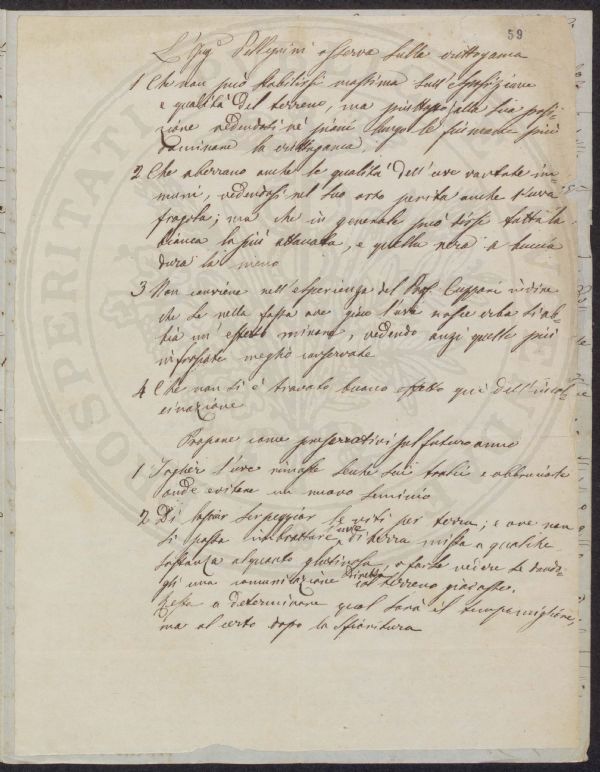 59
L'Sig.r Pellegrini osserva sulla crittogama
1 Che non può stabilirsi massima sull'esposizione
e qualità del terreno, ma piuttosto alla sua posi=
zione vedendosi né piani lungo le fiumane più
dominare la crittogama.
2 Che aberrano anche le qualità dell'uve vantate im=
muni, vedendosi nel suo orto perita anche l'uva
fragola; ma che in generale può dirsi tutta la
bianca la più attaccata, e quella nera a buccia
dura la meno
3 Non conviene nell'esperienza del Prof. Cuppari
che se nella fossa ove giace l'uve nasce erba si ab=
bia un effetto minore, vedendo anzi quelle più
infossate meglio conservate
4 Che non si è trovato buono effetto qui dell'
Propone come preservativi sul futuro anno
1 Toglier l'uve rimaste secche sui tralci e abbruciarle
onde evitare un nuovo seminio
2 Di lasciar serpeggiar le viti per terra; e ove non
si possa imbrattare l'uve di terra mista a qualche
sostanza alquanto glutinosa, o farle vedere se dando=
gli una comunicazione diretta col terreno giovasse.
Resta a determinare qual sarà il tempo migliore,
ma al certo dopo la sfioritura
HOSPERITATI